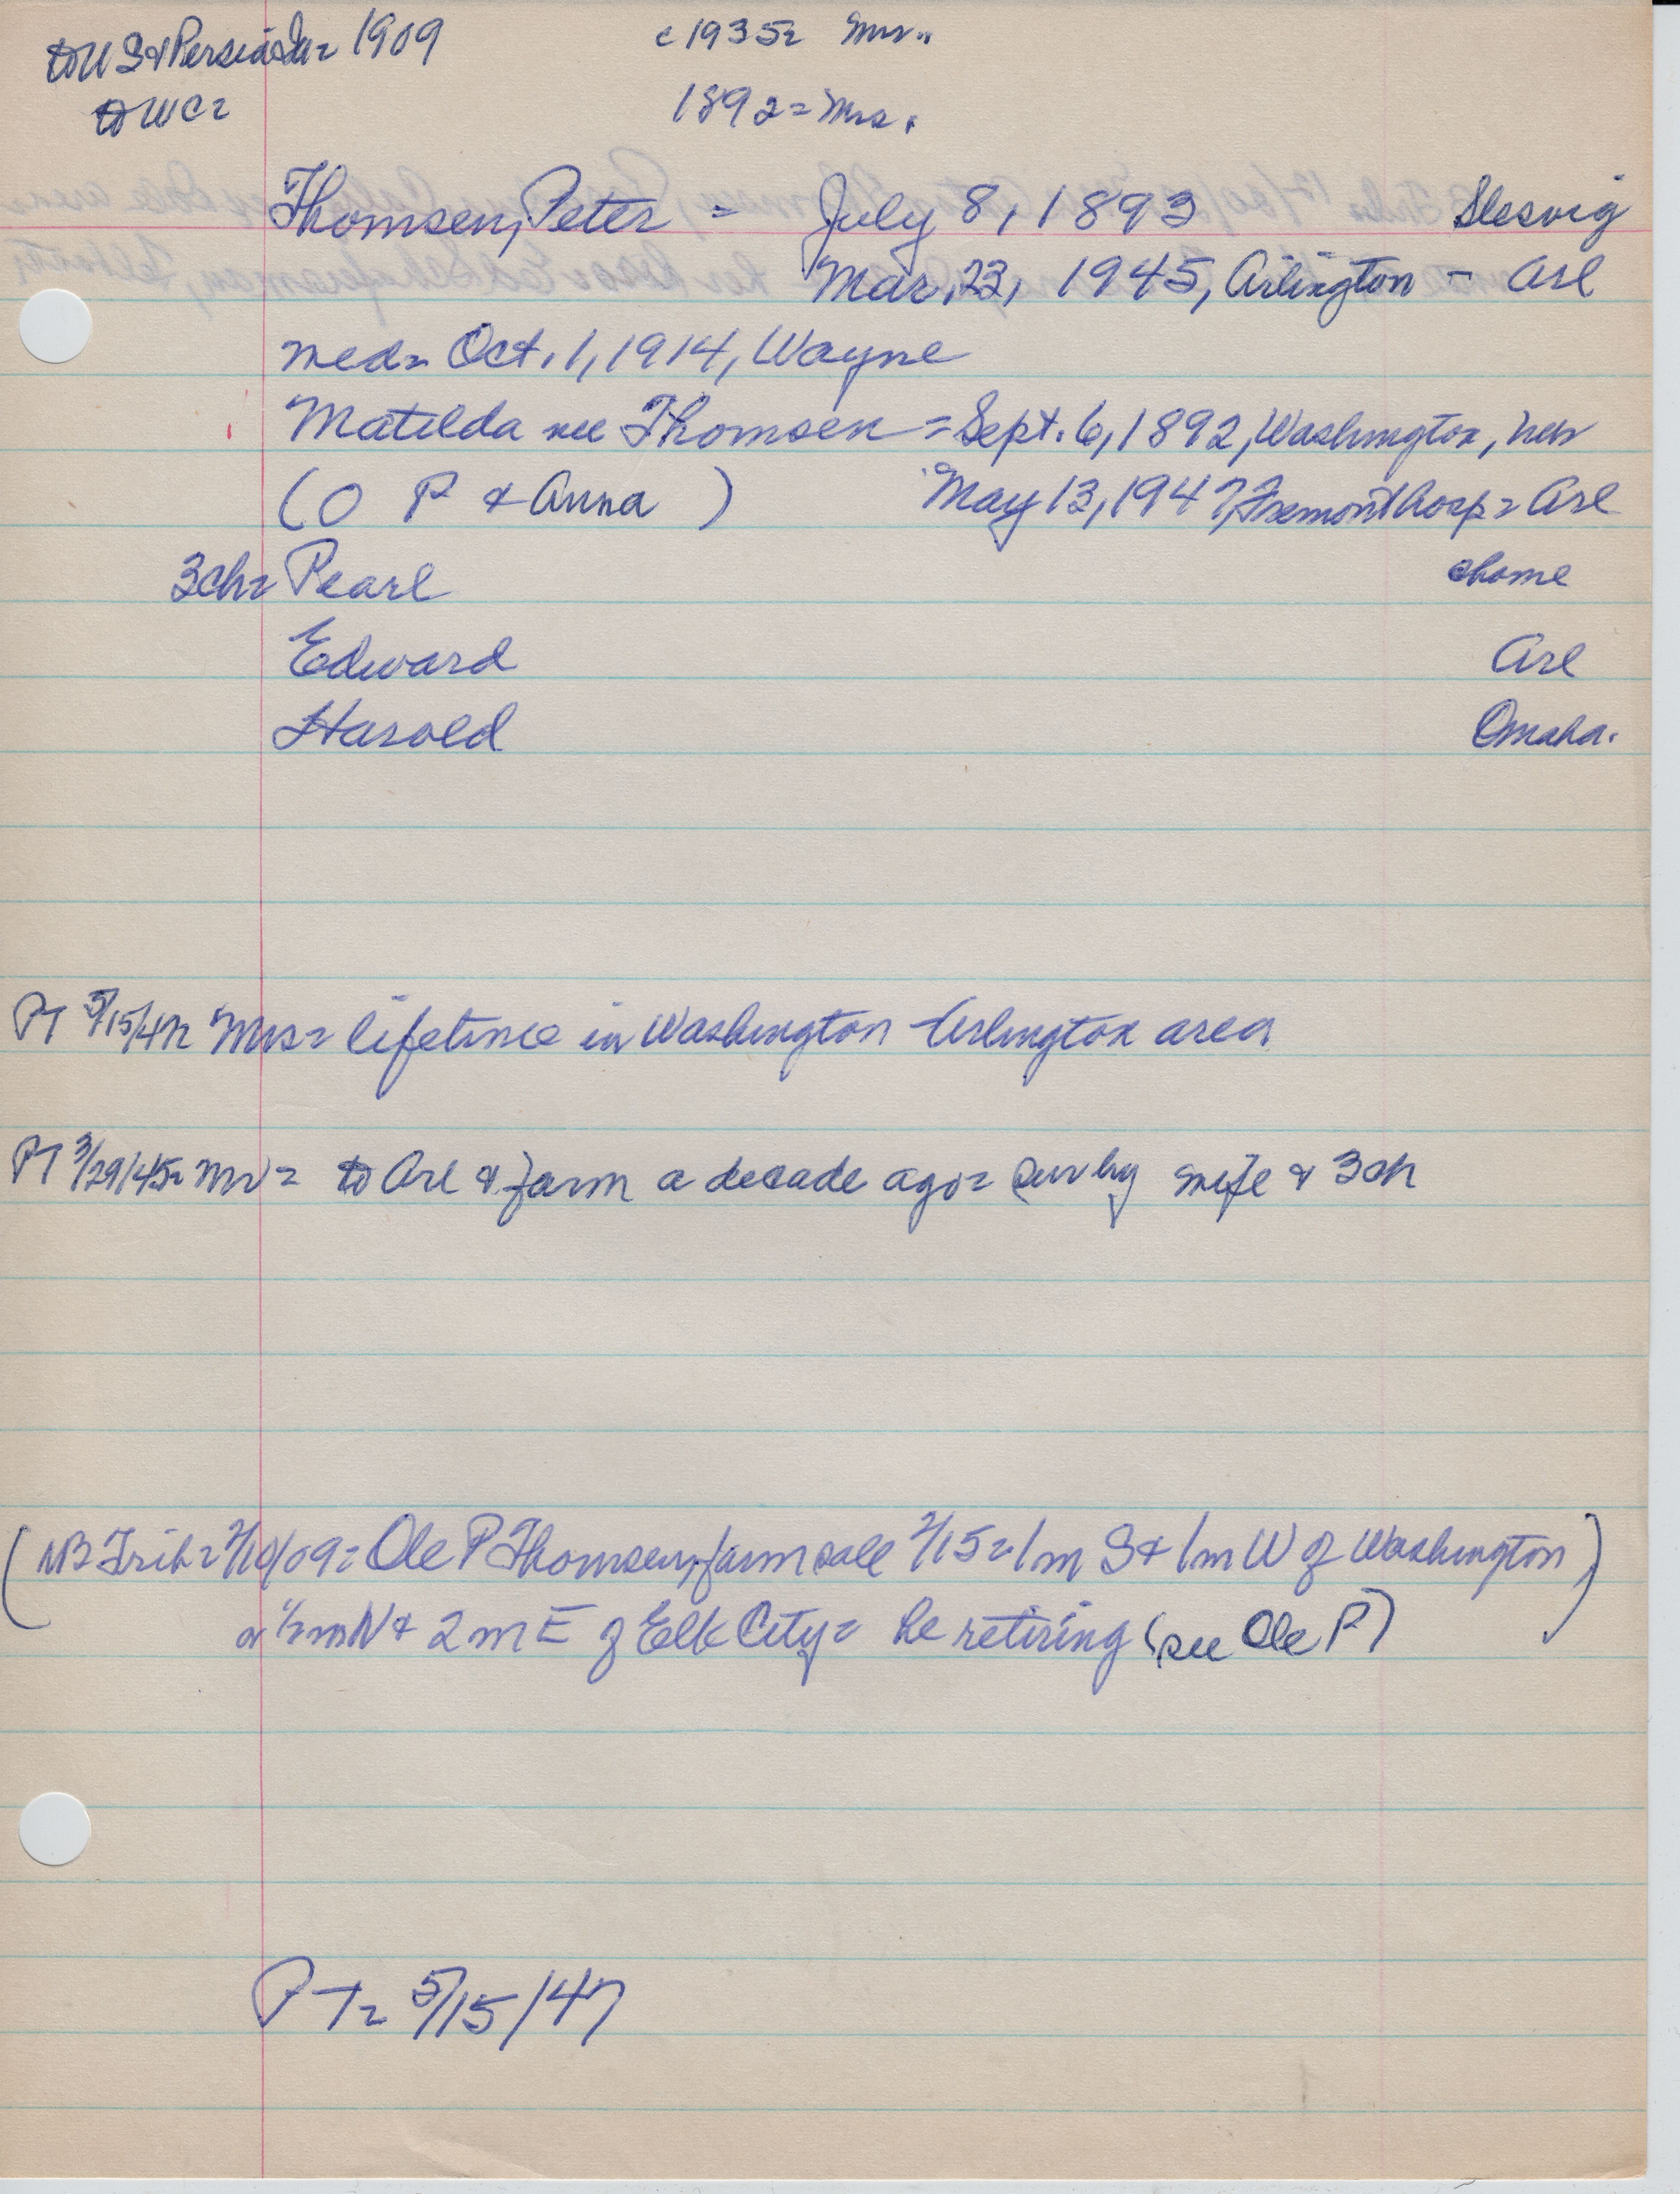 to US & Persia Ia = 1909
c 1935 = Mr.
to WC =
1892 = Mrs.
Thomsen, Peter = July 8, 1893 Slesvig
Mar. 23, 1945, Arlington - Arl
med = Oct. 1, 1914, Wayne
Matilda nee Thomsen = Sept. 6, 1892, Washington, Neb
(O P & Anna ) May 13, 1947, Fremont Hosp = Arl
3ch = Pearl @home
Edward Arl
Harold Omaha.
PT 5/15/47 Mrs = lifetime in Washington Arlington area
PT 3/29/45 = Mr = to Arl & farm a decade ago = sur by wife & 3ch
(NB Trib = 2/10/09 = Ole P Thomsen, farm sale 2/15 = 1m S & 1m W of Washington
or 1/2 m N & 2 m E of Elk City = he retiring (see Ole P) )
PT = 5/15/47